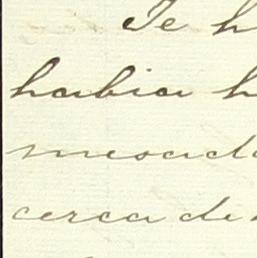 Te h
habia h
mesad
cerca de